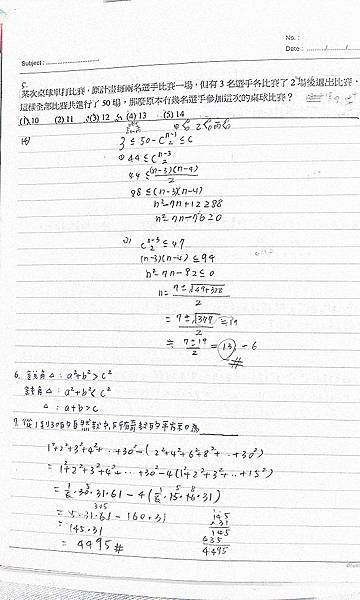 No. :
Date :
Subject :
5.
某次桌球單打比賽,原計畫每兩名選手比賽一場,但有3名選手各比賽了2場後退出比賽,
這樣全部比賽共進行了50場,那麼原本有幾名選手參加這次的桌球比賽?
(1) 10 (2) 11 (3) 12 (4) 13 (5) 14
44 ≤ (n-3)(n-4)/2
88 ≤ (n-3)(n-4)
n²-7n+12 ≥ 88
n²-7n-76 ≥ 0
(n-3)(n-4) ≤ 94
n²-7n-82 ≤ 0
= 7±√377/2
≒ 7±19/2 = 13, -6 #
6. 銳角△: a²+b²>c²
鈍角△: a²+b²<c²
△: a+b>c
7. 從1到30的自然數中,所有奇數的平方和為
1²+2²+3²+4²+…+30²-(2²+4²+6²+8²…+30²)
= 1²+2²+3²+4²+…+30²-4(1²+2²+3²+…+15²)
= 1/6·30·31·61-4(1/6·15·16·31)
= 5·31·61-160·31
305
= 145·31
= 4495 #
145
× 31
145
435
4495